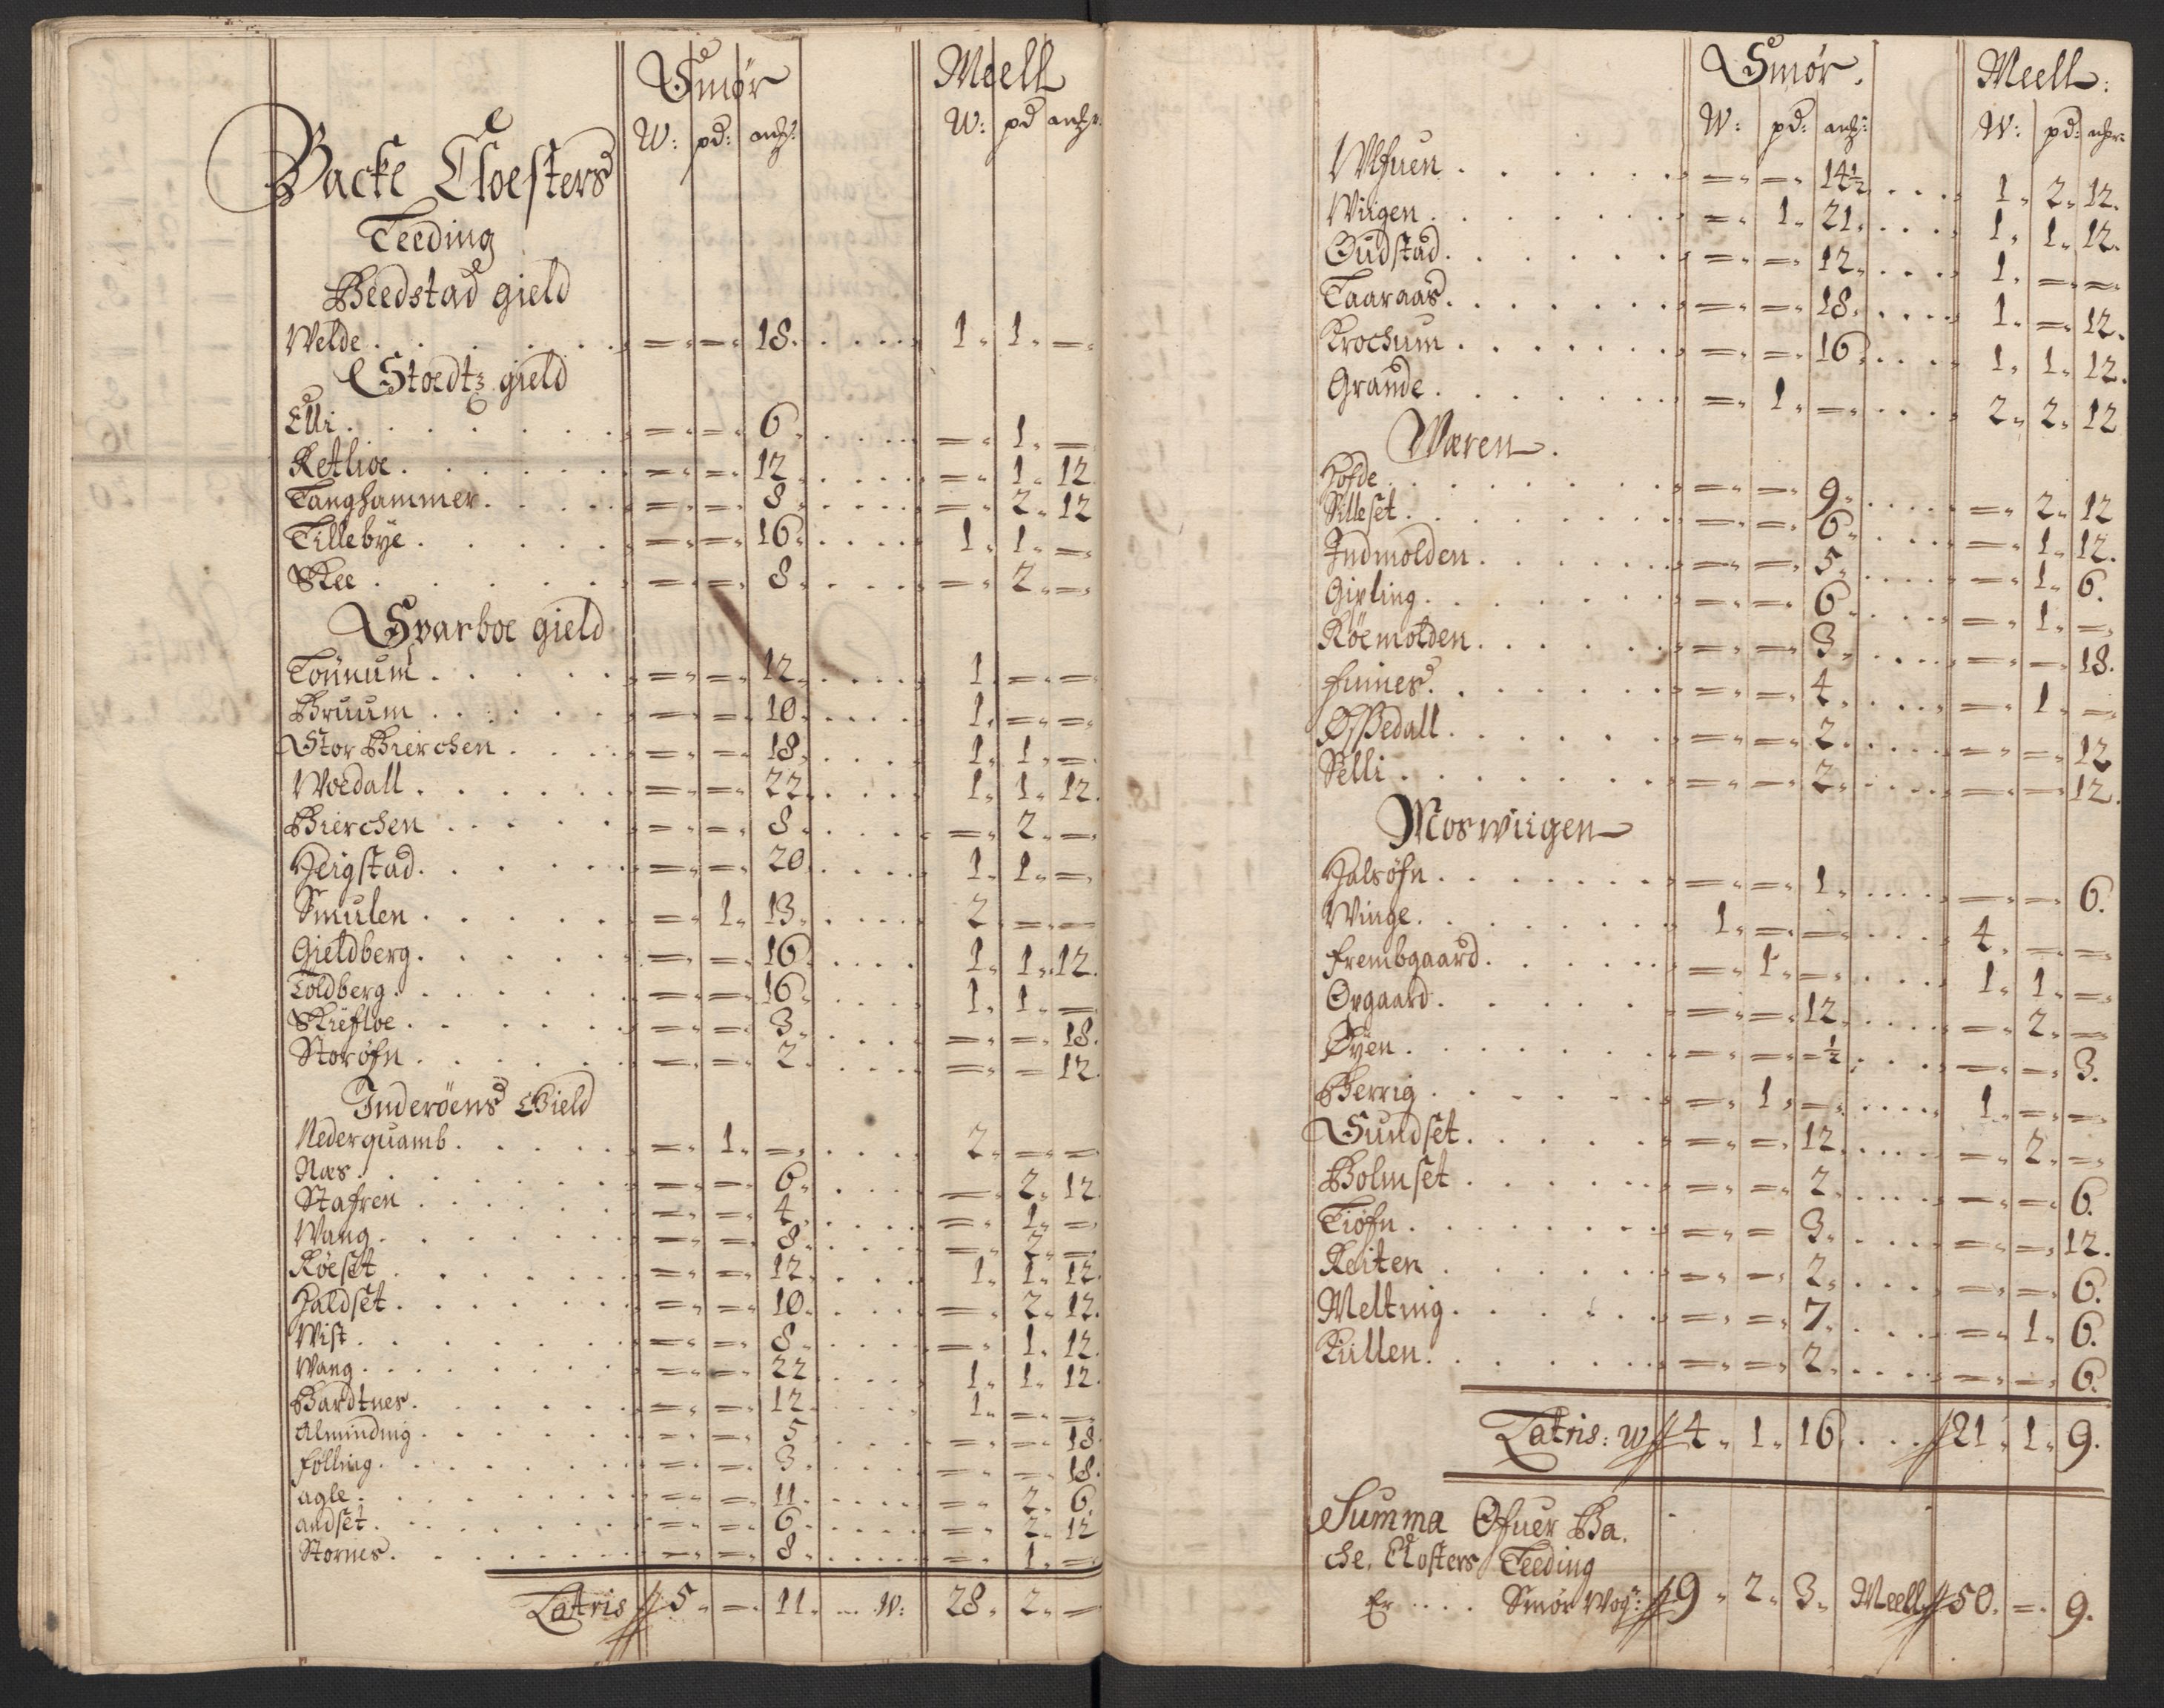 Smør Meell
W: pd: W: pd
Backe Closters
Teeding
Beedstad gield
Welde . . . . . =„ =„ 18. . . . . 1„ 1„ =„
Stoedtz gield
Elli . . . . . =„ =„ 6„ . . . . =„ 1„ =„
Ketlioe . . . . . =„ =„ 12„ . . . . =„ 1„ 12
Tanghammer . . . . . =„ =„ 8„ . . . . =„ 2„ 12
Tillebye . . . . . =„ =„ 16„ . . . . 1„ 1„ =„
Skee . . . . . =„ =„ 8„ . . . . =„ 2„ =„
Sparboe gield
Tønnum . . . . . =„ =„ 12„ . . . . 1„ =„ =„
Bruum . . . . . =„ =„ 10„ . . . . 1„ =„ =„
Stor Bierchen . . . . . =„ =„ 18„ . . . . 1„ 1„ =„
Woedall . . . . . =„ =„ 22„ . . . . 1„ 1„ 12.
Bierchen . . . . . =„ =„ 8„ . . . . =„ 2„ =„
Heigstad . . . . . =„ =„ 20„ . . . . 1„ 1„ =„
Smulen . . . . . =„ 1„ 13„ . . . . 2„ =„ =„
Gieldberg . . . . . =„ =„ 16„ . . . . 1„ 1„ 12.
Toldberg . . . . . =„ =„ 16„ . . . . 1„ 1„ =„
Skiefloe . . . . . =„ =„ 3„ . . . . =„ =„ 18.
Storøfn . . . . . =„ =„ 2„ . . . . =„ =„ 12.
Inderöens Gield
Nederquamb . . . . . =„ 1„ =„ . . . . 2„ =„ =„
Næs . . . . . =„ =„ 6„ . . . . =„ 2„ 12.
Stafren . . . . . =„ =„ 4„ . . . . =„ 1„ =„
Wang . . . . . =„ =„ 8„ . . . . =„ 2„ =„
Røeset . . . . . =„ =„ 12„ . . . . 1„ 1„ 12.
Haldset . . . . . =„ =„ 10„ . . . . =„ 2„ 12.
Wist . . . . . =„ =„ 8„ . . . . =„ 1„ 12.
Wang . . . . . =„ =„ 22 . . . . 1„ 1„ 12.
Bardtnes . . . . . =„ =„ 12„ . . . . 1„ =„ =„
Alminding . . . . . =„ =„ 5 . . . . =„ =„ 18.
Følling . . . . . =„ =„ 3„ . . . . =„ =„ 18.
agle . . . . . =„ =„ 11„ . . . . =„ 2„ 6.
andset . . . . . =„ =„ 6„ . . . . =„ 2„ 12
Stornes . . . . . =„ =„ 8„ . . . . =„ 1„ =„
Latris 5„ =„ 11„ ... W: 28„ 2„ =
Smør. Meell:
W: pd: W: pd:
. . . . . =„ =„ 14½ . . . . 1„ 2„ 12.
Wiigen . . . . . =„ 1„ 21„ . . . . 1„ 1„ 12.
Oudstad . . . . . =„ =„ 12„ . . . . 1„ =„ =„
Taaraas . . . . . =„ =„ 18„ . . . . 1„ =„ 12.
Krochum . . . . . =„ =„ 16„ . . . . 1„ 1„ 12.
Grande . . . . . =„ 1„ =„ . . . . 2„ 2„ 12
Wæren.
Holde . . . . . =„ =„ 9„ . . . . =„ 2„ 12
Silleset . . . . . =„ =„ 6„ . . . . =„ 1„ 12.
Indmolden . . . . . =„ =„ 5„ . . . . =„ 1„ 6.
Gipling . . . . . =„ =„ 6„ . . . . =„ 1„ =„
Røemolden . . . . . =„ =„ 3„ . . . . =„ =„ 18.
Finnes . . . . . =„ =„ 4„ . . . . =„ 1„ =„
. . . . . =„ =„ 2„ . . . . =„ =„ 12
Selli . . . . . =„ =„ 2„ . . . . =„ =„ 12.
Moswiigen
Halsøfn . . . . . =„ =„ 1„ . . . . =„ =„ 6.
Winge . . . . . 1„ =„ =„ . . . . 4„ =„ =„
Frembgaard . . . . . =„ 1„ =„ . . . . 1„ 1„ =„
Opgaard . . . . . =„ =„ 12„ . . . . =„ 2„ =„
Øyen . . . . . =„ =„ =½„ . . . . =„ =„ 3.
Berrig . . . . . =„ 1„ =„ . . . . 1„ =„ =„
Sundset . . . . . =„ =„ 12„ . . . . =„ 2„ =„
Bolmset . . . . . =„ =„ 2„ . . . . =„ =„ 6.
Tiøfn . . . . . =„ = 3„ . . . . =„ =„ 12.
Reiten . . . . . =„ =„ 2„ . . . . =„ =„ 6.
Melting . . . . . =„ =„ 7„ . . . . =„ 1„ 6.
Kiillen . . . . . =„ =„ 2„ . . . . =„ =„ 6.
Latris: W 4„ 1„ 16„ . . . 21„ 1„ 9.
Summa Ofuer Ba.
che. Closters Teeding
Er . . . . Smør Wog: 9„ 2„ 3„ Meell 50. =„ 9.